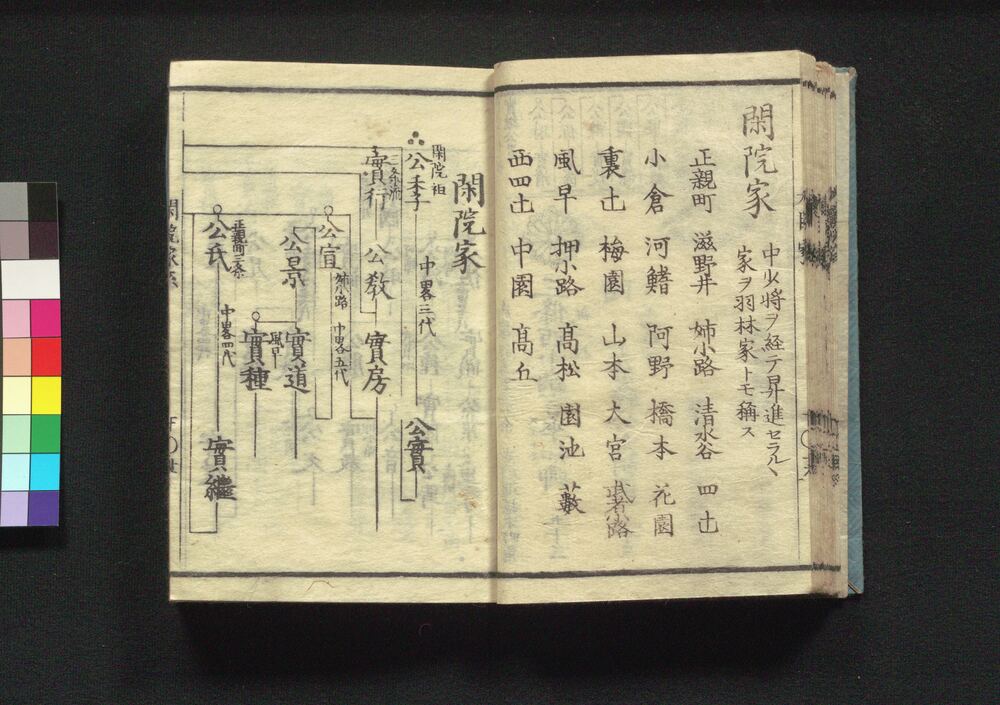 閑院家
中少将ヲ経テ昇進セラルヽ
家ヲ羽林家トモ稱ス
正親町 滋野井 姉小路 清水谷 四辻
小倉 河鰭 阿野 橋本 花園
裏辻 梅園 山本 大宮 武者小路
風早 押小路 髙松 園池 藪
西四辻 中園 髙丘
閑院家
閑院祖
公季 中畧三代 公實
三条流
實行 公敎 實房
公宣 姉小路 中畧五代
公景 實道
風早
實種
正親町三条
公氏 中畧四代 實繼
閑院家系